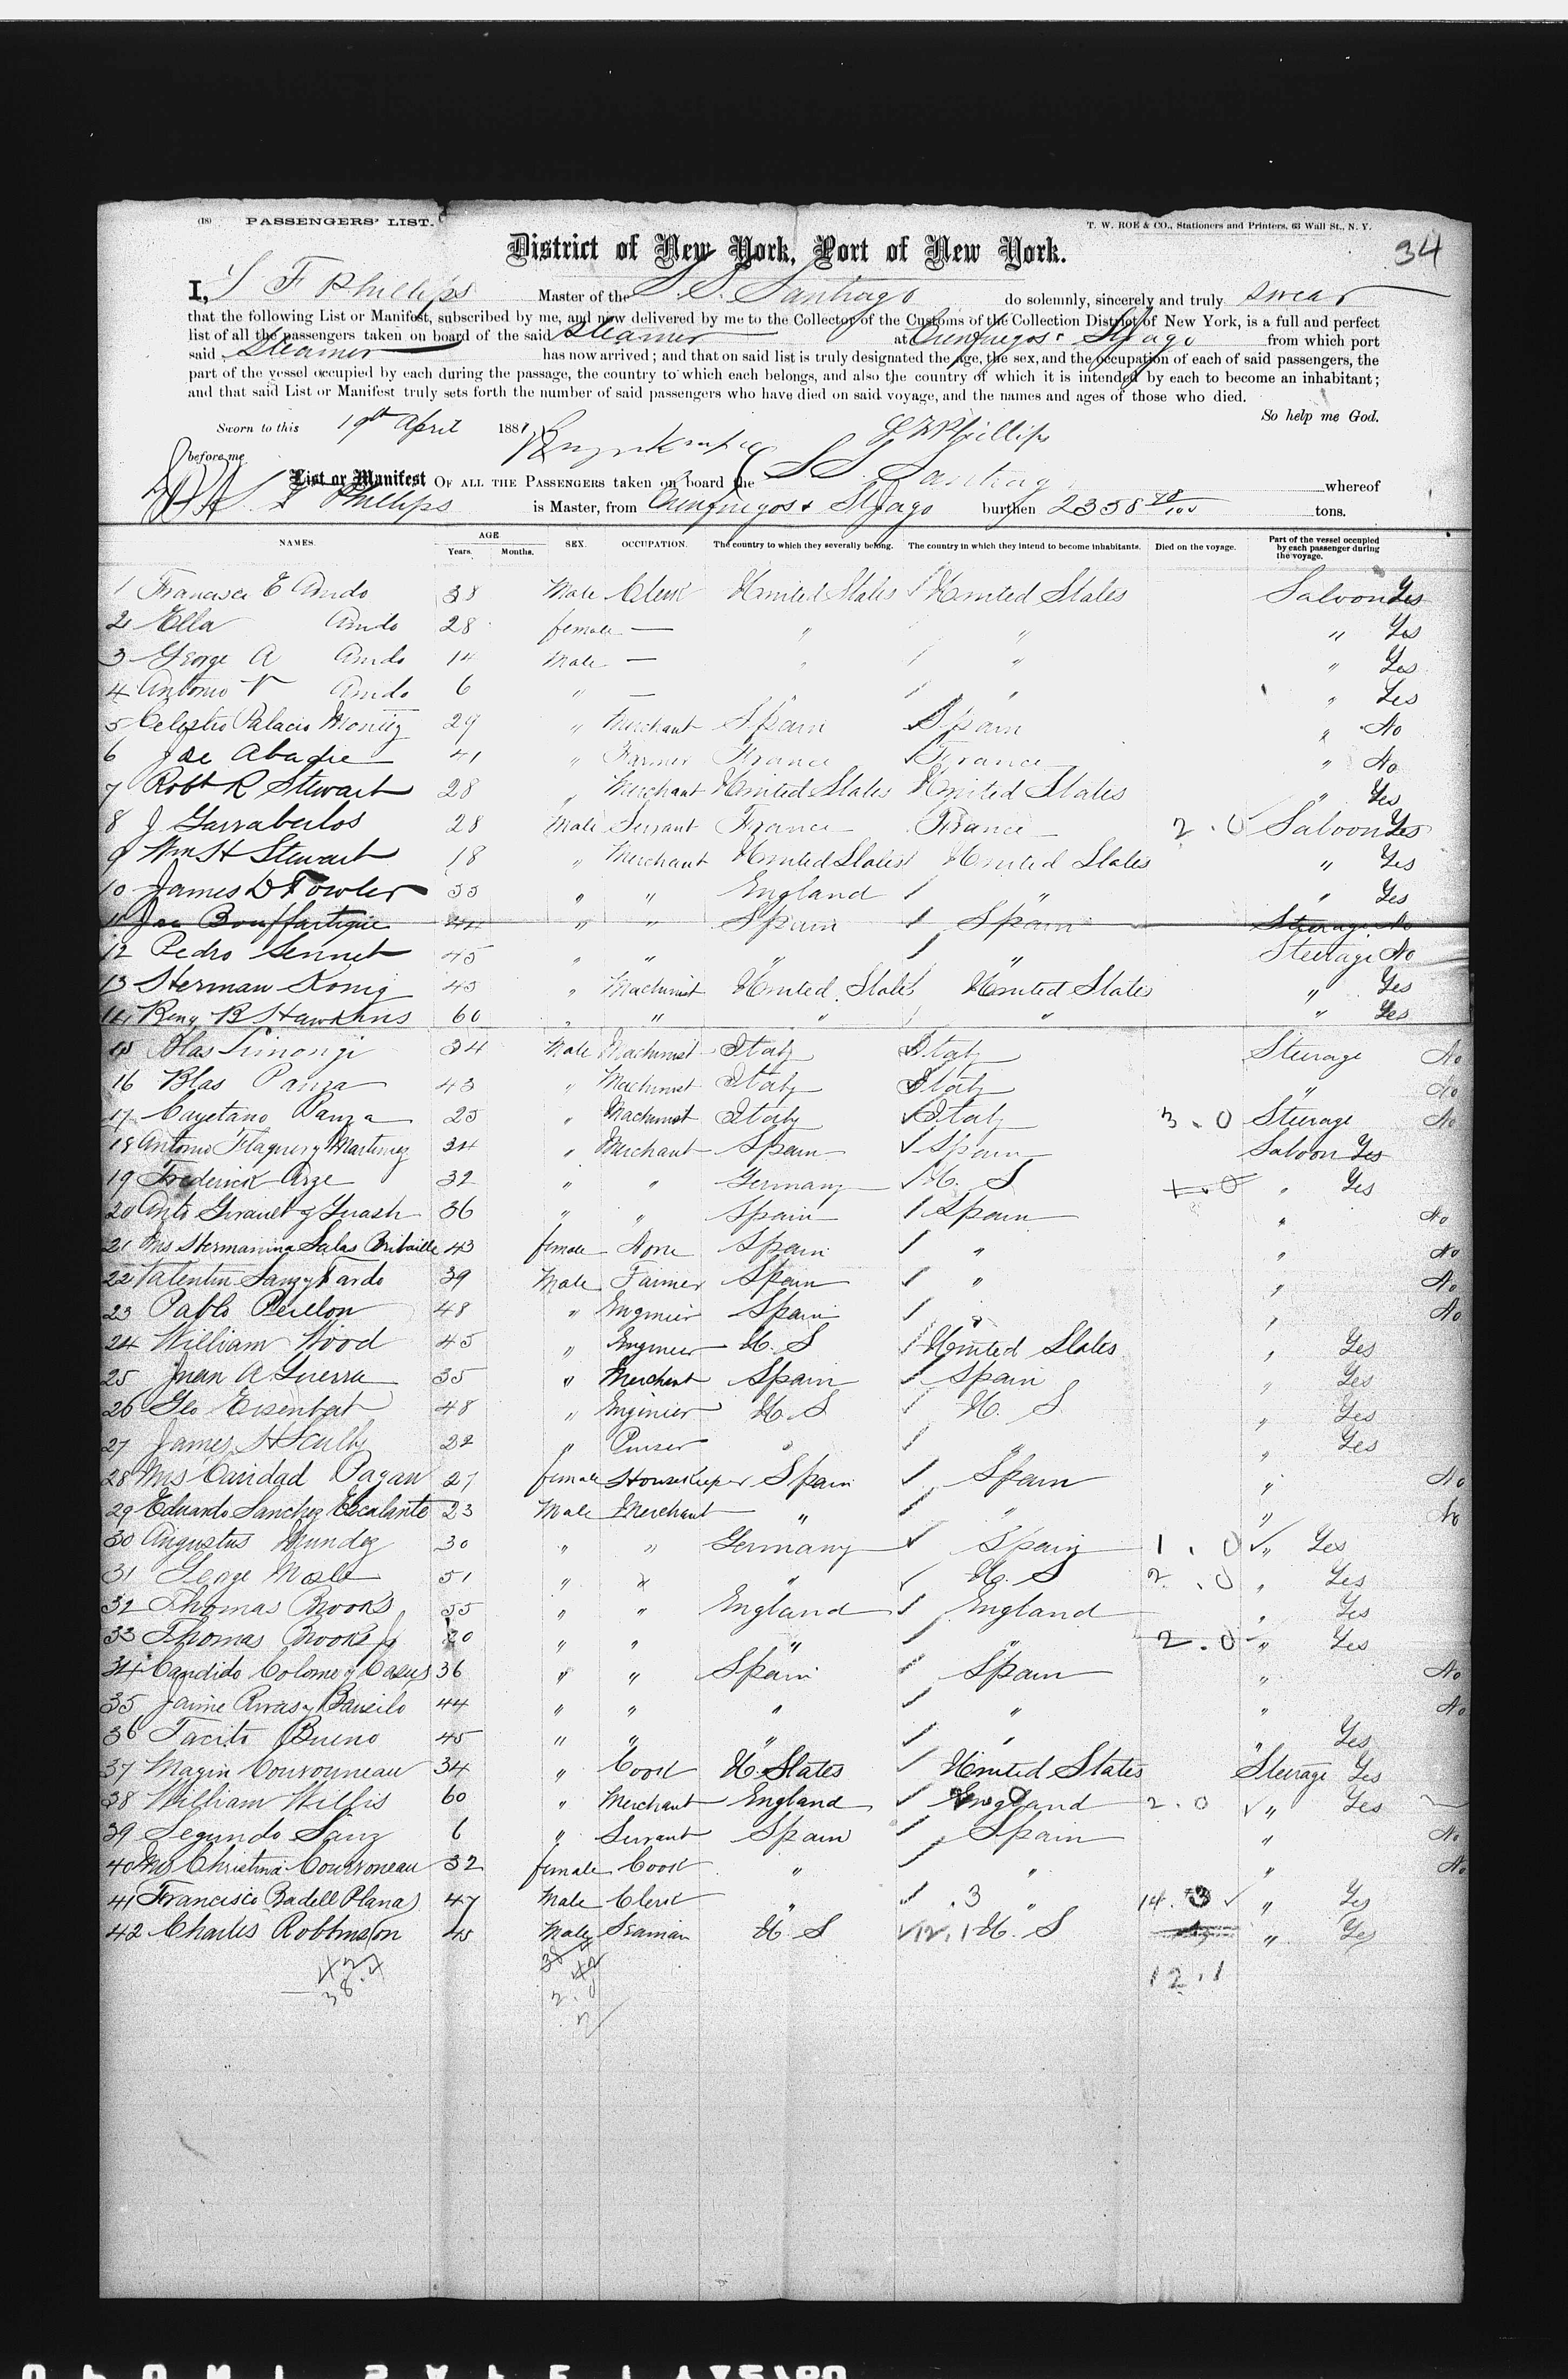 (18) PASSENGERS' LIST.
T. W. ROE & CO., Stationers and Printers, 63 Wall St., N. Y.
34
District of New York, Port of New York.
I, S F Phillips Master of the S.S. Santiago do solemnly, sincerely and truly swear
that the following List or Manifest, subscribed by me, and now delivered by me to the Collector of the Customs of the Collection District of New York, is a full and perfect
list of all the passengers taken on board of the said Steamer at Cienfuegos & St Jago from which port
said Steamer has now arrived; and that on said list is truly designated the age, the sex, and the occupation of each of said passengers, the
part of the vessel occupied by each during the passage, the country to which each belongs, and also the country of which it is intended by each to become an inhabitant;
and that said List or Manifest truly sets forth the number of said passengers who have died on said voyage, and the names and ages of those who died.
So help me God.
Sworn to this 19th April 1887, Phillips
before me
List or Manifest OF ALL THE PASSENGERS taken on board the S S. Santiago whereof
S F Phillips is Master, from Cienfuegos & St Jago burthen 2358 78/100 tons.
NAMES. AGE Years. Months. SEX. OCCUPATION. The country to which they severally belong. The country in which they intend to become inhabitants. Died on the voyage. Part of the vessel occupied by each passenger during the voyage.
1 38 Male Clerk United States / United States Saloon Yes
2 Ella 28 female — " " " Yes
3 George A 14 Male — " / " " Yes
4 Antonio V 6 " — / " " Yes
5 Celestro Palacio 29 " Merchant Spain Spain " No
6 Abadie 41 " Farmer France France " No
7 Robt R Stewart 28 " Merchant United States United States " Yes
8 J 28 Male Servant France France 2.0 Saloon Yes
9 Wm H Stewart 18 " Merchant United States United States " Yes
10 James D Fowler 33 " " England / " " Yes
11 Bouffartique 44 " " Spain / Spain Steerage No
12 Pedro Sennet 45 " " " / " Steerage No
13 Herman Konig 43 " Machinist United States United States " Yes
14 Benj B Hawkins 60 " " " / " " Yes
15 Blas 34 Male Machinist Italy Italy Steerage No
16 Blas Panza 43 " Machinist Italy Italy " No
17 Cayetano Panza 25 " Machinist Italy Italy 3.0 Steerage No
18 Antonio Flaquer y Martinez 34 " Merchant Spain Spain Saloon Yes
19 Frederick Arze 32 " " Germany U. S 1.0 " Yes
20 Anto 36 " " Spain / Spain " No
21 Mrs Hermanina Salas 43 female None Spain / " " No
22 Valentin Sanz y 39 Male Farmer Spain / " " No
23 Pablo 48 " Enginier Spain / " " No
24 William Wood 45 " Engineer U. S / United States " Yes
25 Juan A Guerra 35 " Merchant Spain / Spain " Yes
26 Geo 48 " Enginier U. S / U. S " Yes
27 James H Scully 22 " Purser " / " " Yes
28 Mrs Caridad Pagan 27 female Housekeeper Spain / Spain " No
29 Eduardo Sanchez Escalante 23 Male Merchant " / " " No
30 Augustus 30 " " Germany / Spain 1.0 " Yes
31 51 " " " / U. S 2.0 " Yes
32 Thomas Brooks 55 " " England / England " Yes
33 Thomas Brooks Jr 20 " " " / " 2.0 " Yes
34 Candido Colome y 36 " " Spain / Spain " No
35 Jaime 44 " " " / " " No
36 Tacito Bueno 45 " " " / " " Yes
37 Magin Couronneau 34 " Cook U. States / United States Steerage Yes
38 William Willis 60 " Merchant England / England 2.0 " Yes
39 Segundo Sanz 6 " Servant Spain / Spain " No
40 Mrs Christina Couronneau 32 female Cook " / " " No
41 Francisco Badell Planas 47 Male Clerk " / .3 " 14.3 " Yes
42 Charles Robinson 45 Male Seaman U. S 12.1 U. S " Yes
12.1